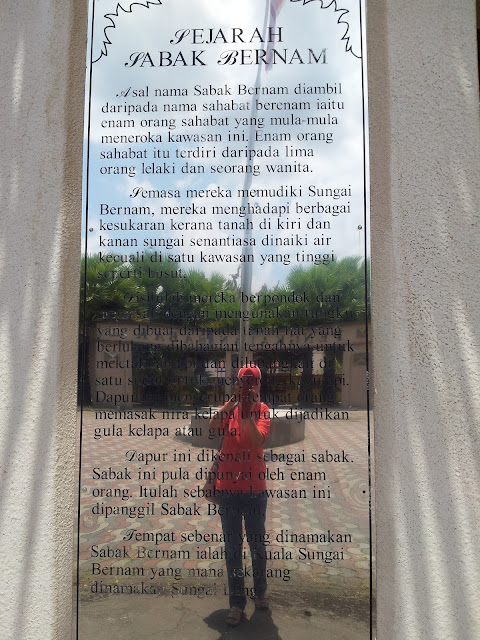 SEJARAH
SABAK BERNAM
Asal nama Sabak Bernam diambil
daripada nama sahabat berenam iaitu
enam orang sahabat yang mula-mula
meneroka kawasan ini. Enam orang
sahabat itu terdiri daripada lima
orang lelaki dan seorang wanita.
Semasa mereka memudiki Sungai
Bernam, mereka menghadapi berbagai
kesukaran kerana tanah di kiri dan
kanan sungai senantiasa dinaiki air
kecuali di satu kawasan yang tinggi
seperti busut.
mereka berpondok dan
yang dibuat daripada tanah liat yang
berlubang dibahagian tengahnya untuk
satu
Dapur ini menyerupai tempat orang
memasak nira kelapa untuk dijadikan
gula kelapa atau gula.
Dapur ini dikenali sebagai sabak.
Sabak ini pula dipunyai oleh enam
orang. Itulah sebabnya kawasan ini
dipanggil Sabak Bernam.
Tempat sebenar yang dinamakan
Sabak Bernam ialah di Kuala Sungai
Bernam yang mana sekarang
dinamakan Sungai